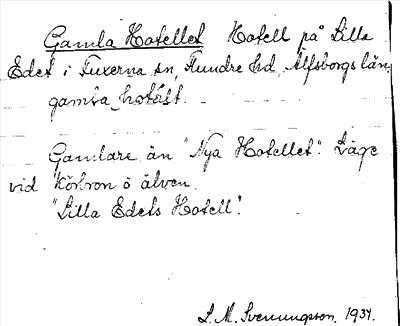 Gamla Hotellet Hotell på Lilla
Edet i Fuxerna sn, Flundre hd, Älfsborgs län
gamla hotäll.
Gamlare än "Nya Hotellet". Läge
vid Körbron ö älven.
"Lilla Edets Hotell".
S. M. Svenungsson. 1934.